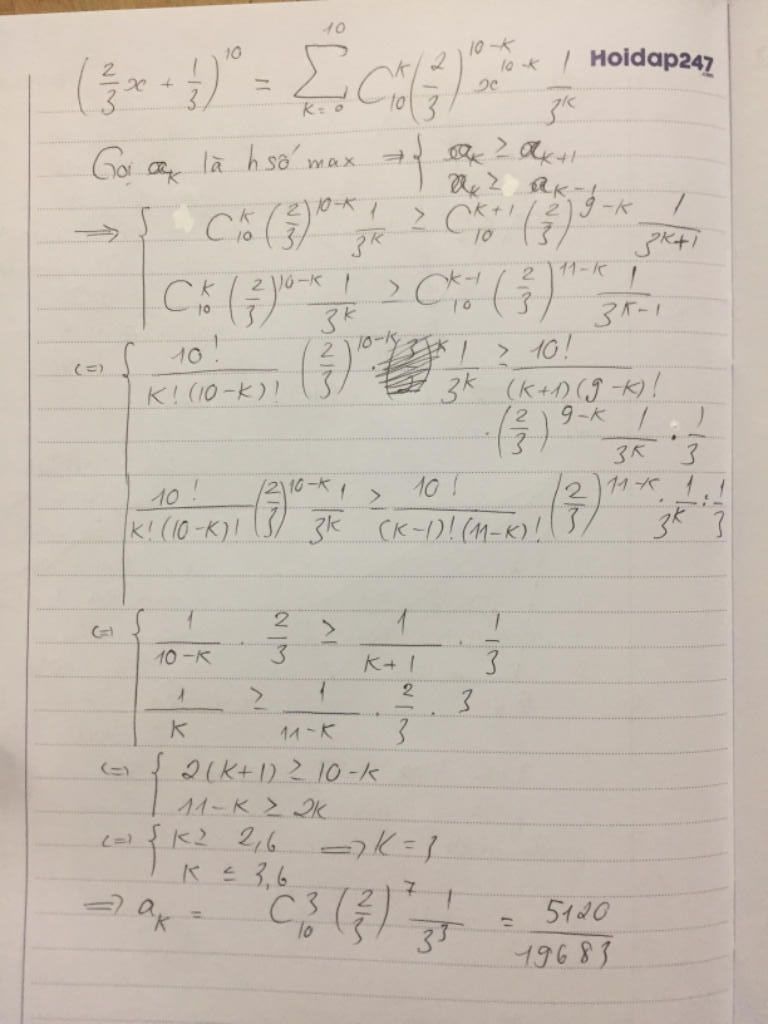 (2/3 x + 1/3)^10 = ∑_{K=0}^{10} C_10^K (2/3)^{10-K} x^{10-K} 1/3^K
Hoidap247
.com
Gọi a_K là h số max ⇒ { a_K ≥ a_{K+1}
a_K ≥ a_{K-1}
⇒ { C_10^K (2/3)^{10-K} 1/3^K ≥ C_10^{K+1} (2/3)^{9-K} 1/3^{K+1}
C_10^K (2/3)^{10-K} 1/3^K ≥ C_10^{K-1} (2/3)^{11-K} 1/3^{K-1}
(=) { 10!/(K!(10-K)!) (2/3)^{10-K} · 1/3^K ≥ 10!/((K+1)(9-K)!)
· (2/3)^{9-K} 1/3^K · 1/3
10!/(K!(10-K)!) (2/3)^{10-K} 1/3^K ≥ 10!/((K-1)!(11-K)!) (2/3)^{11-K} · 1/3^K : 1/3
(=) { 1/(10-K) · 2/3 ≥ 1/(K+1) · 1/3
1/K ≥ 1/(11-K) · 2/3 · 3
(=) { 2(K+1) ≥ 10-K
11-K ≥ 2K
(=) { K ≥ 2,6 ⇒ K = 3
K ≤ 3,6
⇒ a_K = C_10^3 (2/3)^7 1/3^3 = 5120/19683